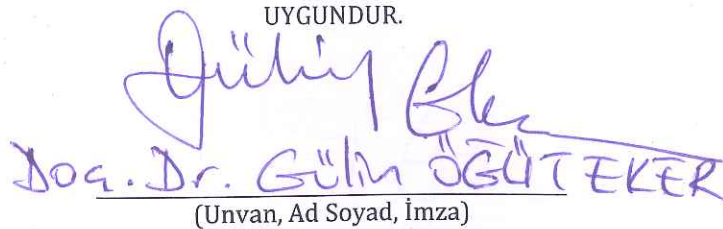 UYGUNDUR.
Gülin Eker
Doç. Dr. Gülin ÖĞÜT EKER
(Unvan, Ad Soyad, İmza)